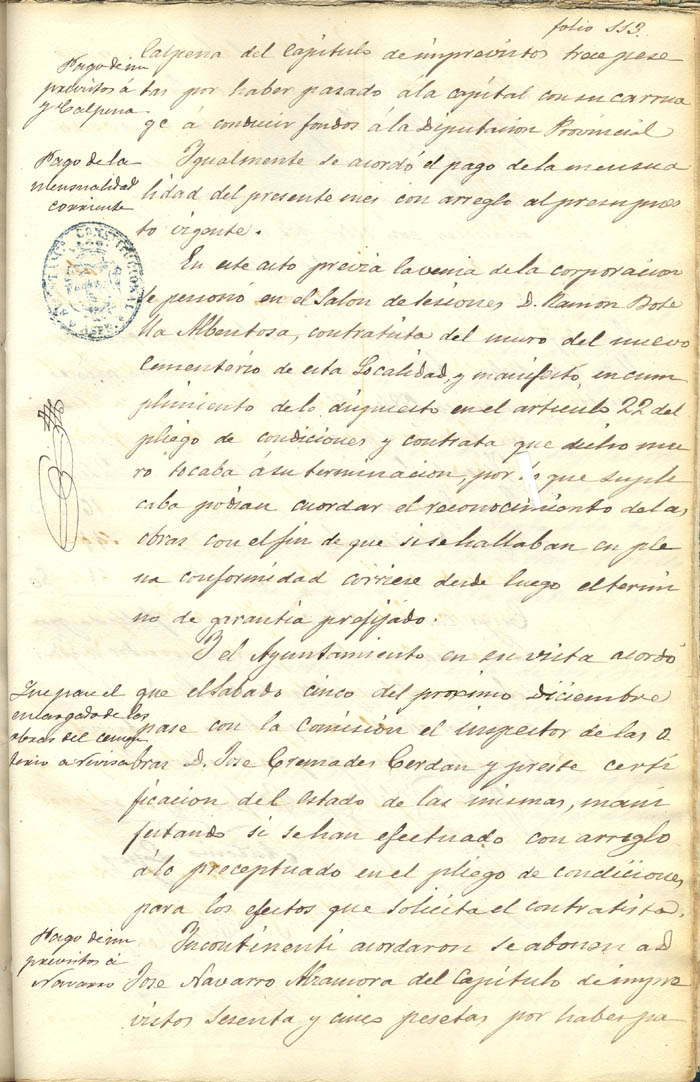 folio 113.
Calpena del Capitulo de imprevistos trece pese
Pago de im
previstos á
y Calpena
tas por haber pasado á la capital con su carrua
ge á conducir fondos á la Diputacion Provincial
Pago de la
mensualidad
corriente
Igualmente se acordó el pago de la mensua
lidad del presente mes con arreglo al presupues
to vigente.
CONSTITUCIONAL
ASPE
En este acto previa la venia de la corporacion
se personó en el Salon de sesiones D. Ramon Bote
lla Albentosa, contratista del muro del nuevo
Cementerio de esta Localidad, y manifestó, en cum
plimiento de lo dispuesto en el articulo 22 del
pliego de condiciones y contrata que dicho mu
ro tocaba á su terminacion, por lo que suplí
caba podian acordar el reconocimiento de las
obras con el fin de que si se hallaban en ple
na conformidad corriese desde luego el térmi
no de garantia prefijado.
Y el Ayuntamiento en su vista acordó
Que pase el
encargado de las
obras del cemen
terio a revisar
que el Sabado cinco del próximo Diciembre
pase con la Comisión el inspector de las o
bras D. José Cremades Cerdan y preste certi
ficacion del estado de las mismas, mani
festando si se han efectuado con arreglo
á lo preceptuado en el pliego de condiciones,
para los efectos que solicita el contratista.
Pago de im
previstos á
Navarro
Incontinenti acordaron se abonen a D.
José Navarro Alzamora del Capitulo de impre
vistos sesenta y cinco pesetas por haber pa